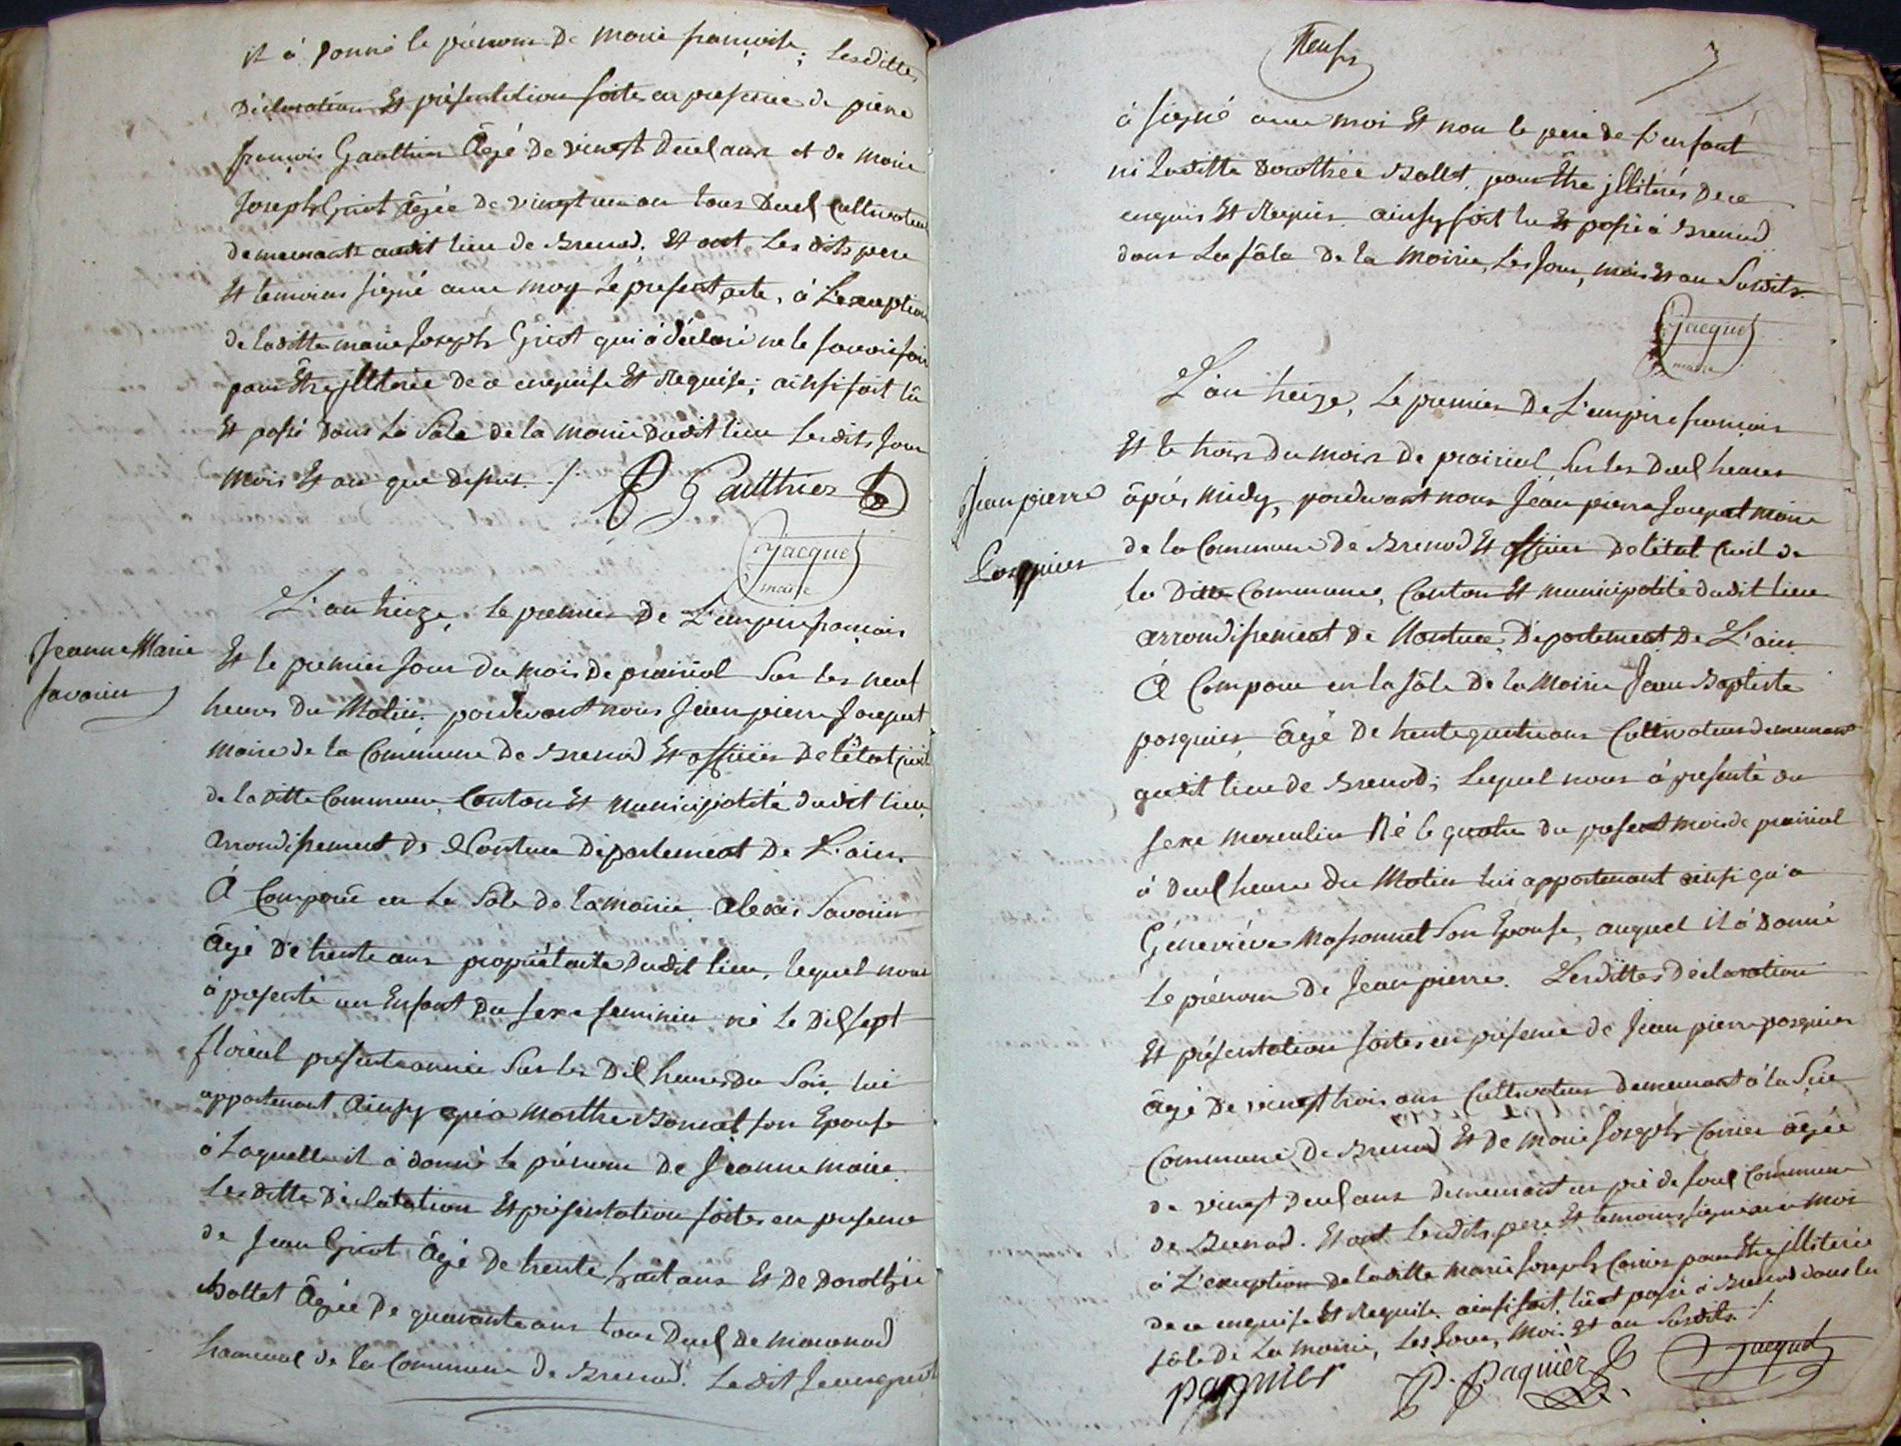 il à donné le prénom de marie françoise; lesdittes
déclaration Et présentation faite en presence de pierre
françois Gaulthier Âgé de vingt deux ans et de marie
Joseph Griot âgée de vingt un an tous deux cultivateurs
demeurants audit lieu de Brenod. Et ont les dits pere
Et temoins signé avec moy le present acte, à L'exception
de laditte marie Joseph Griot qui à déclaré ne le savoir faire
pour Être jlliterée de ce enquise Et Requise; ainsi fait lû
Et passé dans la Sale de la mairie dudit lieu lesdits Jour
mois Et an que dessus ./ P Gaulthier
Jacquet
maire
L'an treize, le premier de L'empire français
Jeanne Marie
Savarin
Et le premier Jour du mois de prairial Sur les neuf
heures du Matin. pardevant nous Jean pierre Jacquet
maire de la Commune de Brenod Et officier de l'état Civil
de laditte Commune, Canton Et municipalité dudit lieu
arrondissement de Nantua Département de L'ain.
À Comparu en la Sale de la mairie alexis Savarin
Âgé de trente ans propriétaite dudit lieu, lequel nous
à presenté un Enfant du sexe feminin né le dix sept
floréal presente année Sur les dix heures du Soir, lui
appartenant ainsy qu'a Marthe Bonnet son Epouse
à Laquelle il à donné le prénom de Jeanne marie.
Lesditte Déclatation Et présentation faites en presence
de Jean Griot Âgé de trente huit ans Et de Dorothée
Ballet Âgée de quarante ans tous deux de macconod
hameaux de la Commune de Brenod. Ledit Jean griot
Neuf
à signé avec moi Et non le pere de l'enfant
ni laditte Dorothée Ballet. pour Être jlliterés de ce
enquis Et Requis ainsy fait lu Et passé à Brenod
dans La sâle de la Mairie, les Jour, mois Et an Susdits.
Jacquet
maire
L'an treize, Le premier De L'empire français
Jean pierre
Pasquier
Et le trois du mois de prairial Sur les Deux heures
âprés midy, pardevant nous Jean pierre Jacquet maire
de la Commune de Brenod Et officier de l'état Civil de
la Ditte Commune, Canton Et municipalité dudit lieu
arrondissement de Nantua, Département De L'ain.
À Comparu en la sâle de la Mairie Jean Baptiste
pasquier Âgé de trente quatre ans Cultivateur demeurant
audit lieu de Brenod; Lequel nous à presenté un
sexe masculin Né le quatre du present mois de prairial
à deux heures Du Matin lui appartenant ainsi qu'a
Géneviéve Massonnet Son Epouse, auquel il à Donné
Le prénom De Jean pierre. Lesdittes déclaration
Et présentation faites en présence de Jean pierre pasquier
âgé De vingt trois ans Cultivateur demeurant à la Scie
Commune de Brenod Et de Marie Joseph Carrier âgée
de vingt deux ans demeurant en pré de faux Commune
de Brenod. Et ont lesdits pere Et temoins signé avec moi
à L'exception de laditte Marie Joseph Carrier pour Être jlliterée
de ce enquise Et Requise. ainsi fait, lû et passé à Brenod dans la
sâle De La mairie, Les Jour, Mois Et an Susdits ./
pasquier P. Paquièr Jacquet